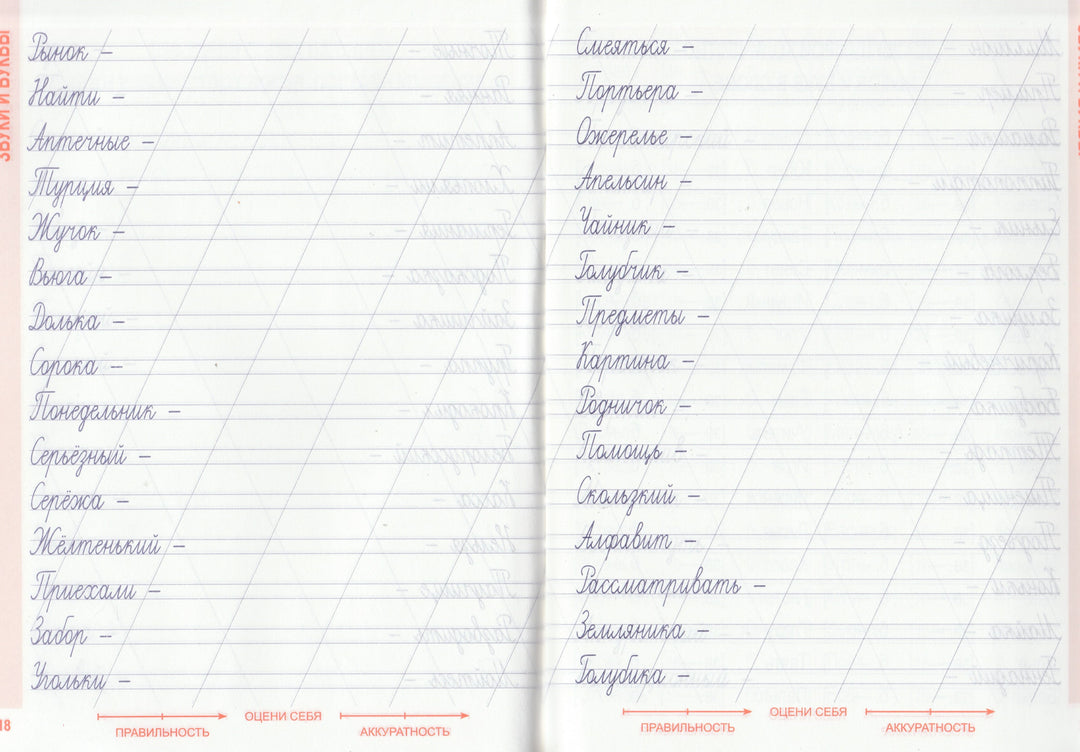 ЗВУКИ И БУКВЫ
Рынок –
Найти –
Аптечные –
Турция –
Жучок –
Вьюга –
Долька –
Сорока –
Понедельник –
Серьёзный –
Серёжа –
Жёлтенький –
Приехали –
Забор –
Угольки –
18
ОЦЕНИ СЕБЯ
ПРАВИЛЬНОСТЬ
АККУРАТНОСТЬ
Смеяться –
Портьера –
Ожерелье –
Апельсин –
Чайник –
Голубчик –
Предметы –
Картина –
Родничок –
Помощь –
Скользкий –
Алфавит –
Рассматривать –
Земляника –
Голубика –
ОЦЕНИ СЕБЯ
ПРАВИЛЬНОСТЬ
АККУРАТНОСТЬ